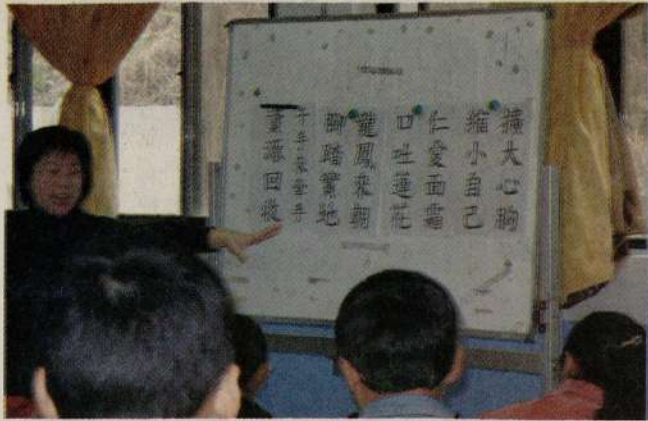 擴大心胸
縮小自己
仁愛面霜
口吐蓮花
龍鳳來朝
腳踏實地
千手來牽手
資源回收